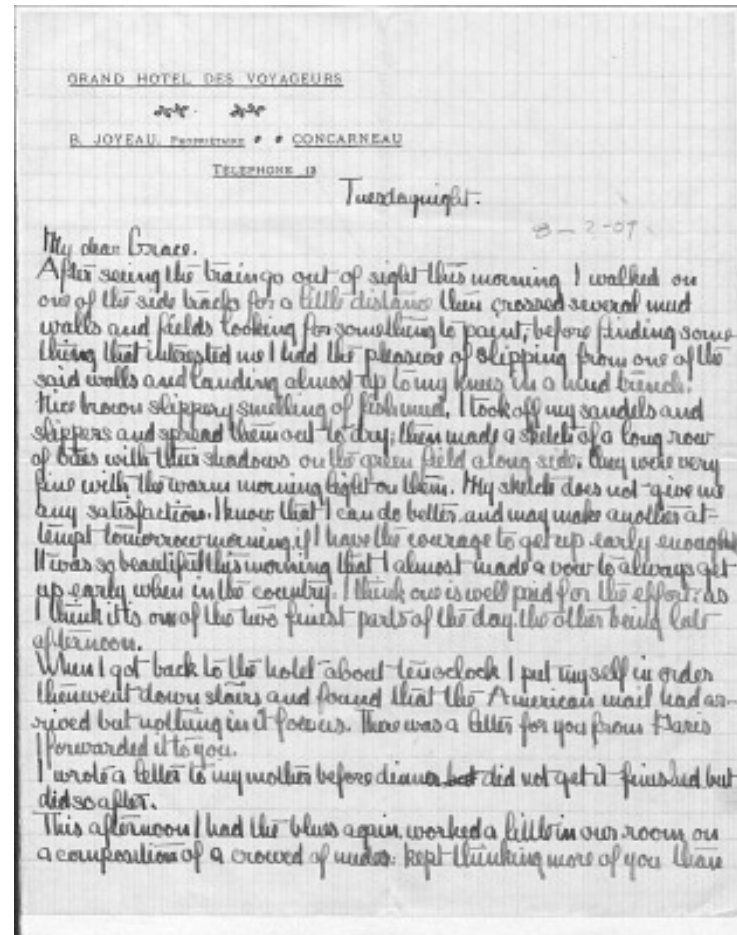 GRAND HOTEL DES VOYAGEURS
B. JOYEAU, PROPRIÉTAIRE CONCARNEAU
TÉLÉPHONE 13
Tuesday night.
8-2-09
My dear Grace.
After seeing the train go out of sight this morning I walked on
one of the side tracks for a little distance then crossed several mud
walls and fields looking for something to paint, before finding some
thing that interested me I had the pleasure of slipping from one of the
said walls and landing almost up to my knees in a mud trench.
Nice brown slippery smelling of fish mud. I took off my sandels and
slippers and spread them out to dry; then made a sketch of a long row
of with their shadows on the green field along side. they were very
fine with the warm morning light on them. My sketch does not give me
any satisfaction. I know that I can do better and may make another at-
tempt tomorrow morning if I have the courage to get up early enough
It was so beautiful this morning that I almost made a vow to always get
up early when in the country. I think one is well paid for the effort: as
I think it is one of the two finest parts of the day. the other being late
afternoon.
When I got back to the hotel about ten oclock I put myself in order
then went down stairs and found that the American mail had ar-
rived but nothing in it for us. There was a letter for you from Paris
I forwarded it to you.
I wrote a letter to my mother before dinner but did not get it finished but
did so after.
This afternoon I had the blues again, worked a little in our room on
a composition of a crowed of nudes: kept thinking more of you than